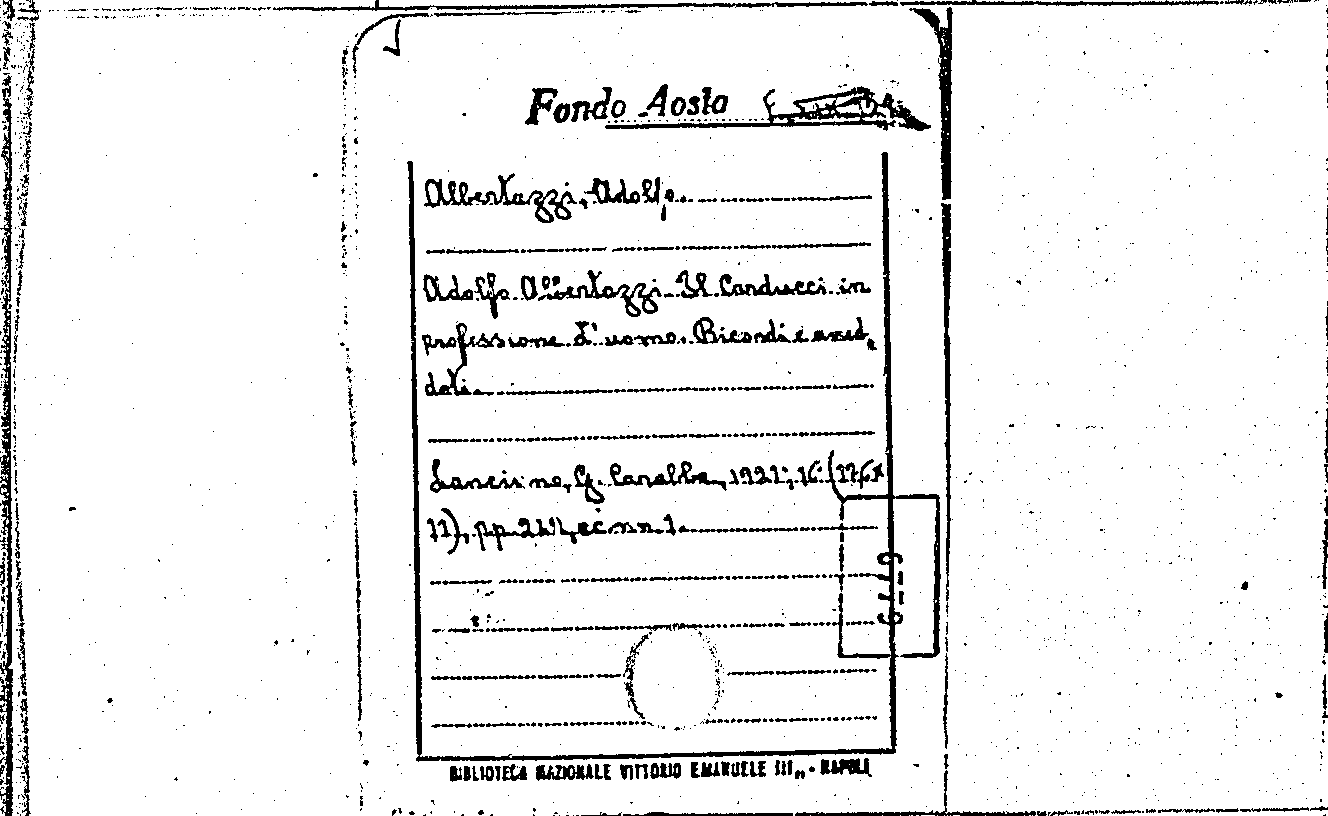 Fondo Aosta
Albertazzi, Adolfo.
Adolfo Albertazzi. Il Carducci in
professione d'uomo. Ricordi e aned,
doti.
Lanciano, G. Carabba, 1921; 16°
11), pp. ecc. nn. 1.
BIBLIOTECA NAZIONALE VITTORIO EMANUELE III,, - NAPOLI